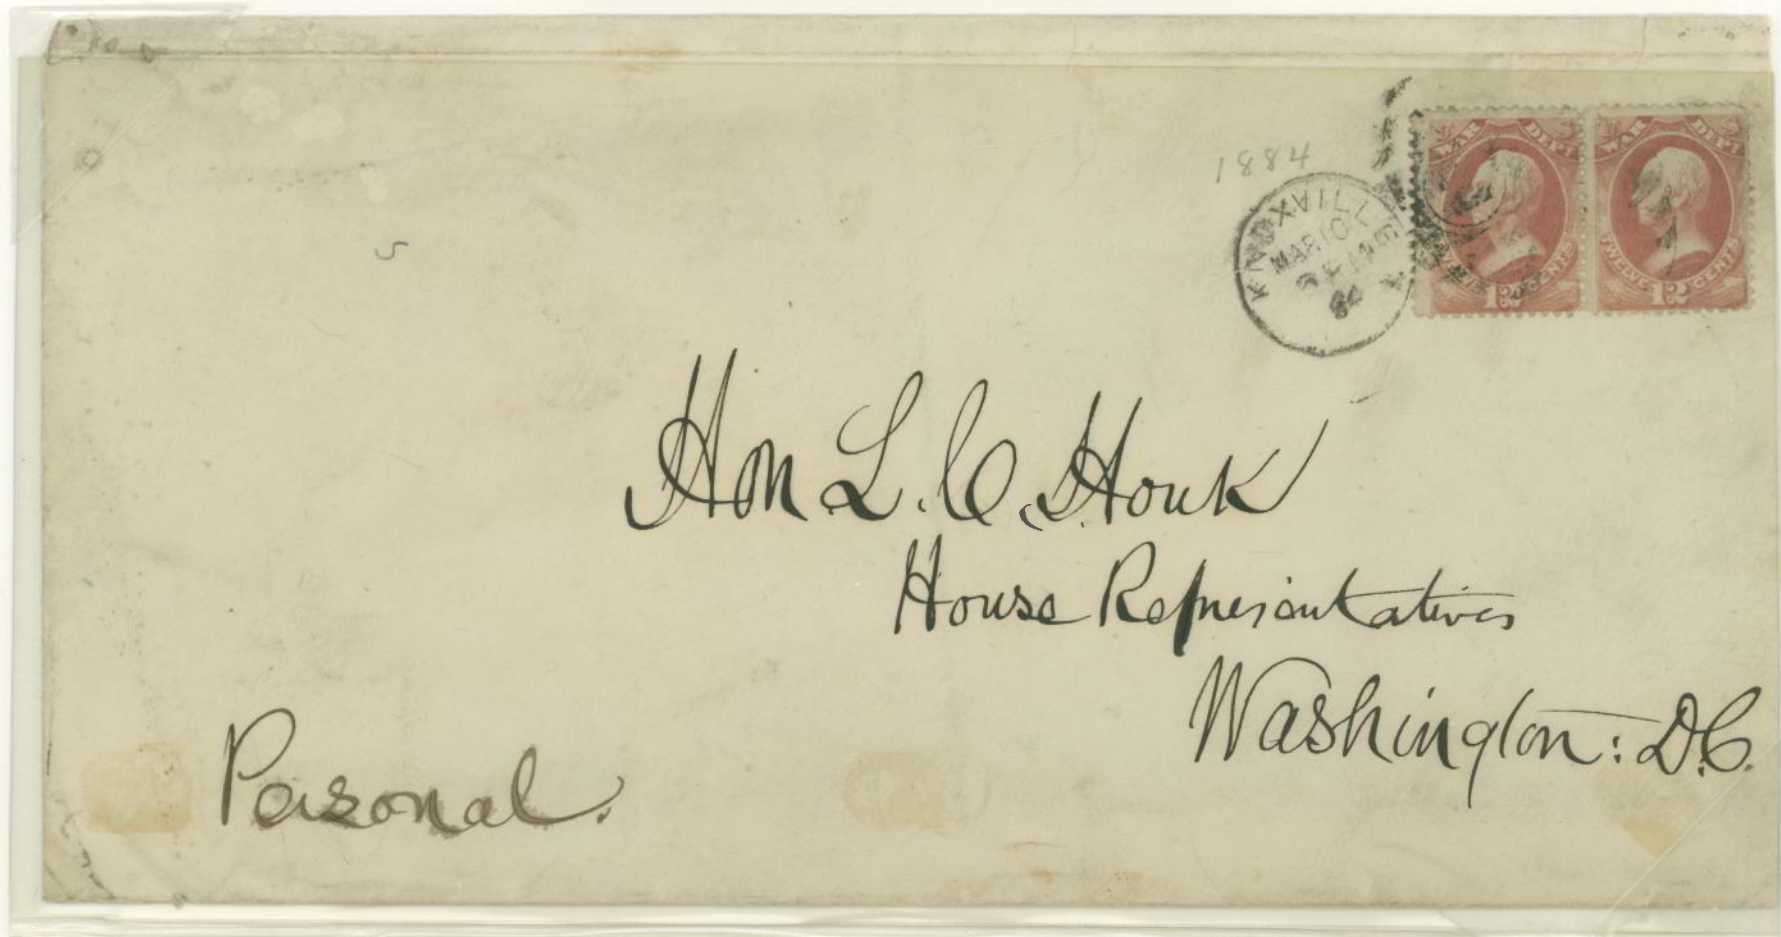 1884
KNOXVILLE
MAR 10
84
WAR DEPT.
TWELVE 12 CENTS
WAR DEPT.
TWELVE 12 CENTS
Hon L. C. Houk
House Representatives
Washington: D.C.
Personal.